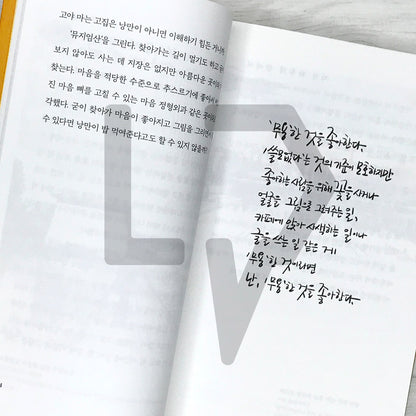 고야 마는 고집은 낭만이 아니면 이해하기 힘든
'뮤지엄산'을 그린다. 찾아가는 길이 멀기도 하고
보지 않아도 사는 데 지장은 없지만 아름다운
찾는다. 마음을 적당한 수준으로 추스르기에
진 마음 뼈를 고칠 수 있는 마음 정형외과 같은
각했다. 굳이 찾아가 마음이 좋아지고 그림을 그리면
수 있다면 낭만이 밥 먹여준다고도 할 수 있지 않을까?
'무용'한 것을 좋아한다.
'쓸모없다'는 것의 기준이 모호하지만
좋아하는 사람을 위해 꽃을 사거나
얼굴을 그림으로 그려주는 일,
카페에 앉아 사색하는 일이나
글을 쓰는 일 같은 게
'무용'한 것이라면
난, '무용'한 것을 좋아한다.